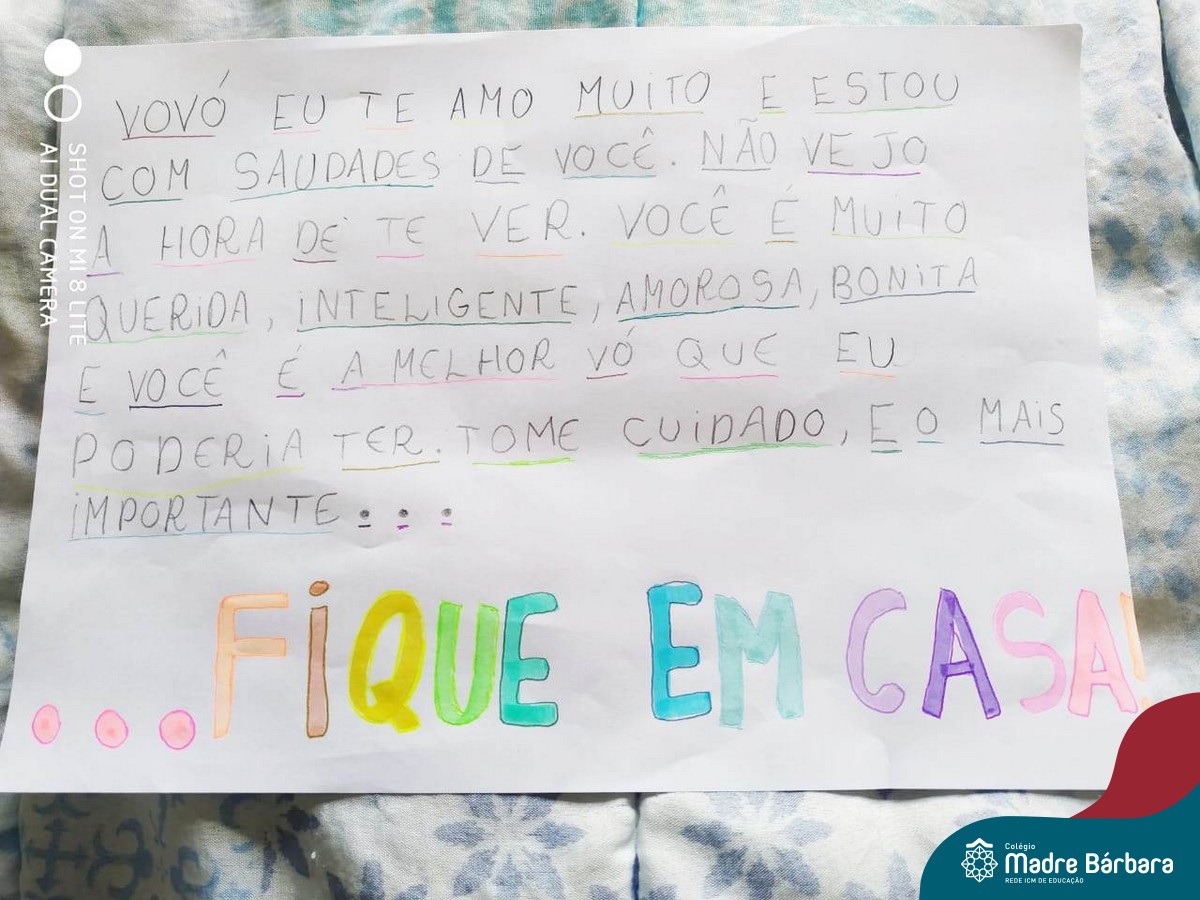 VOVÓ EU TE AMO MUITO E ESTOU
COM SAUDADES DE VOCÊ. NÃO VEJO
A HORA DE TE VER. VOCÊ É MUITO
QUERIDA, INTELIGENTE, AMOROSA, BONITA
E VOCÊ É A MELHOR VÓ QUE EU
PODERIA TER. TOME CUIDADO, E O MAIS
IMPORTANTE...
...FIQUE EM CASA!
SHOT ON MI 8 LITE
AI DUAL CAMERA
Colégio
Madre Bárbara
REDE ICM DE EDUCAÇÃO